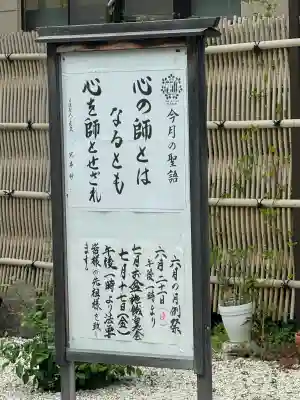 今月の聖語
心の師とは
なるとも
心を師とせざれ
六月の月例祭
六月二十一日
午後一時より
七月お盆施餓鬼会
七月十七日(金)
午後一時より法要
皆様の先祖様を敬い